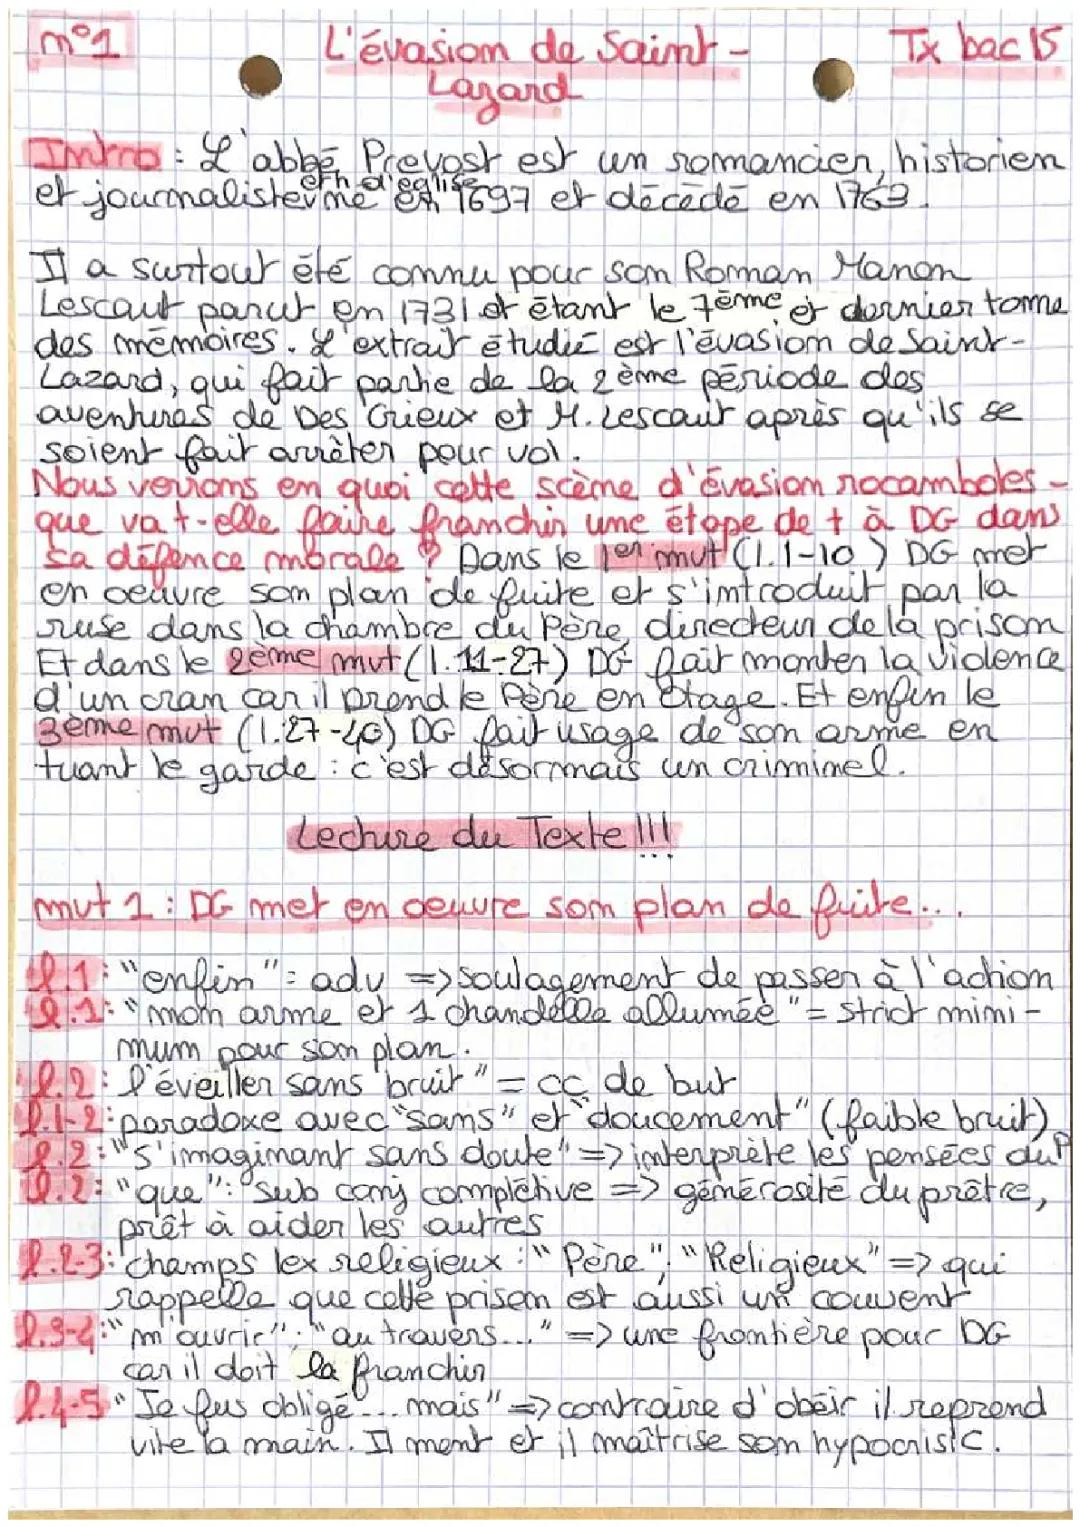 n°1 L'évasion de Saint- Tx bac 15
Lazard
Intro : L'abbé Prevost est un romancier, historien
et h d'église
et journaliste né en 1697 et décédé en 1763.
Il a surtout été connu pour son Roman Manon
Lescaut parut en 1731 et étant le 7ème et dernier tome
des mémoires. L'extrait étudié est l'évasion de Saint-
Lazard, qui fait partie de la 2ème période des
aventures de Des Grieux et M. Lescaut après qu'ils se
soient fait arrêter pour vol.
Nous verrons en quoi cette scène d'évasion rocamboles-
que va t-elle faire franchir une étape de + à DG dans
sa défence morale ? Dans le 1er mvt (l.1-10) DG met
en oeuvre son plan de fuite et s'introduit par la
ruse dans la chambre du Père, directeur de la prison
Et dans le 2ème mvt (l.11-27) DG fait monter la violence
d'un cran car il prend le Père en otage. Et enfin le
3ème mvt (l.27-40) DG fait usage de son arme en
tuant le garde : c'est désormais un criminel.
Lecture du Texte !!!
mvt 1 : DG met en oeuvre son plan de fuite...
l.1: "enfin": adv => soulagement de passer à l'action
l.1: "mon arme et 1 chandelle allumée" = strict mini-
mum pour son plan.
l.2: l'éveiller sans bruit" = cc de but
l.1-2: paradoxe avec "sans" et "doucement" (faible bruit)
l.2: "s'imaginant sans doute" => interprète les pensées du P
l.2: "que": sub conj complétive => générosité du prêtre,
prêt à aider les autres
l.2-3: champs lex religieux : "Père", "Religieux" => qui
rappelle que cette prison est aussi un couvent
l.3-4: "m'ouvrir". "au travers..." => une frontière pour DG
car il doit la franchir
l.4-5 "Je fus obligé... mais" => contraire d'obéir il reprend
vite la main. Il ment et il maîtrise son hypocrisie.